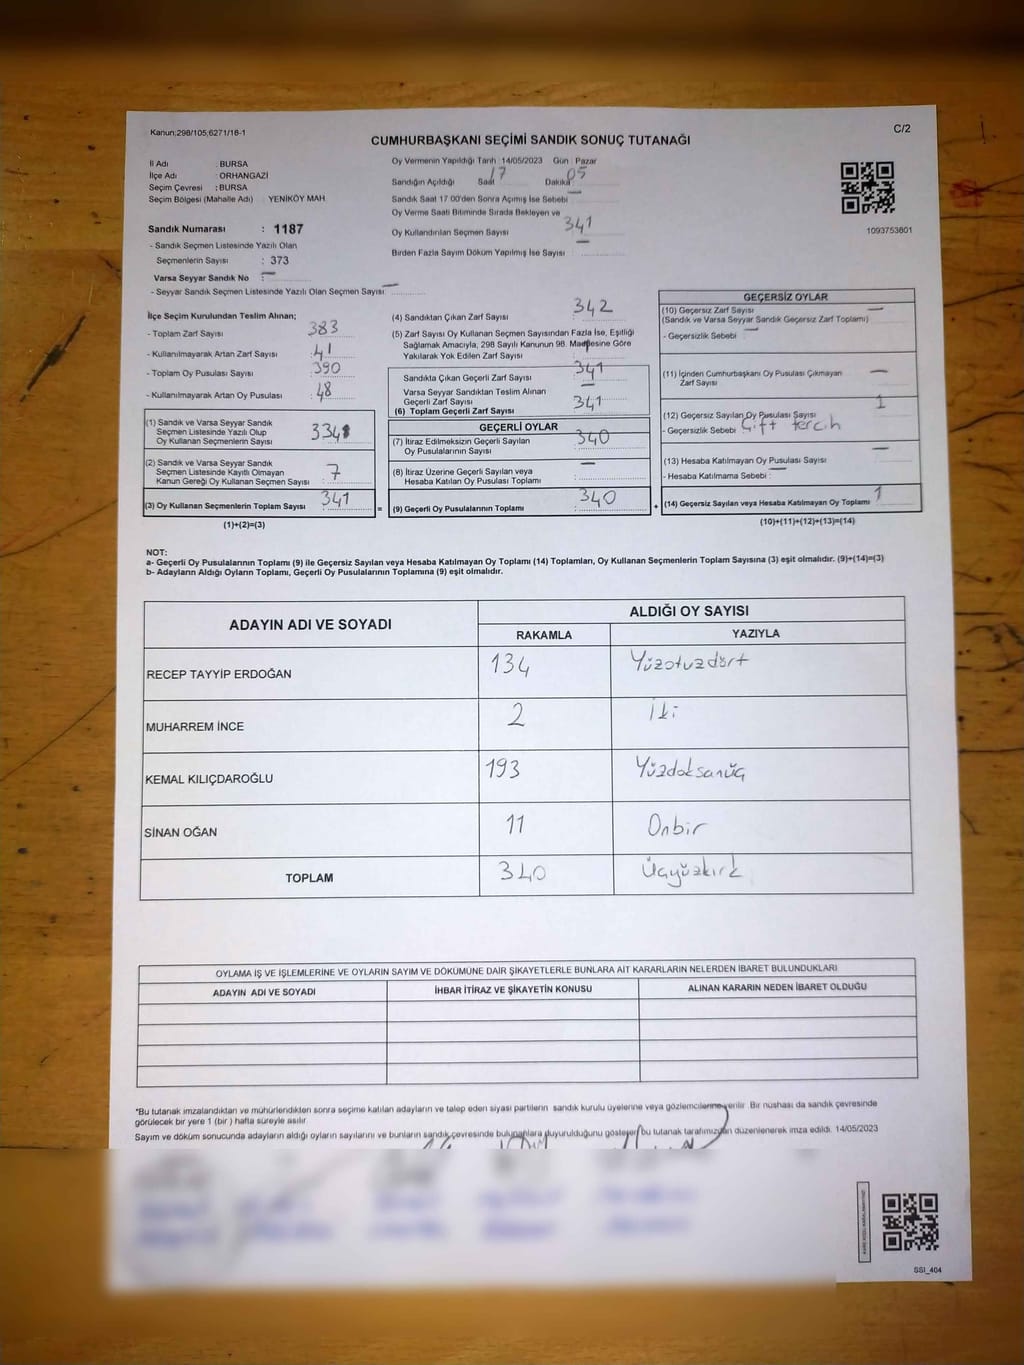 Kanun;298/105;6271/16-1
C/2
CUMHURBAŞKANI SEÇİMİ SANDIK SONUÇ TUTANAĞI
İl Adı : BURSA
İlçe Adı : ORHANGAZİ
Seçim Çevresi : BURSA
Seçim Bölgesi (Mahalle Adı) YENİKÖY MAH.
Sandık Numarası : 1187
- Sandık Seçmen Listesinde Yazılı Olan
Seçmenlerin Sayısı : 373
Varsa Seyyar Sandık No : —
- Seyyar Sandık Seçmen Listesinde Yazılı Olan Seçmen Sayısı: —
Oy Vermenin Yapıldığı Tarih :14/05/2023 Gün : Pazar
Sandığın Açıldığı Saat 17 Dakika 05
Sandık Saat 17 00'den Sonra Açımış İse Sebebi —
Oy Verme Saati Bitiminde Sırada Bekleyen ve
Oy Kullandırılan Seçmen Sayısı 341
Birden Fazla Sayım Döküm Yapılmış İse Sayısı —
1093753601
İlçe Seçim Kurulundan Teslim Alınan;
- Toplam Zarf Sayısı 383
- Kullanılmayarak Artan Zarf Sayısı 41
- Toplam Oy Pusulası Sayısı 390
- Kullanılmayarak Artan Oy Pusulası 48
(1) Sandık ve Varsa Seyyar Sandık
Seçmen Listesinde Yazılı Olup
Oy Kullanan Seçmenlerin Sayısı 334
(2) Sandık ve Varsa Seyyar Sandık
Seçmen Listesinde Kayıtlı Olmayan
Kanun Gereği Oy Kullanan Seçmen Sayısı : 7
(3) Oy Kullanan Seçmenlerin Toplam Sayısı : 341
(1)+(2)=(3)
=
(4) Sandıktan Çıkan Zarf Sayısı 342
(5) Zarf Sayısı Oy Kullanan Seçmen Sayısından Fazla İse, Eşitliği
Sağlamak Amacıyla, 298 Sayılı Kanunun 98. Maddesine Göre
Yakılarak Yok Edilen Zarf Sayısı : 1
Sandıkta Çıkan Geçerli Zarf Sayısı 341
Varsa Seyyar Sandıktan Teslim Alınan
Geçerli Zarf Sayısı —
(6) Toplam Geçerli Zarf Sayısı 341
GEÇERLİ OYLAR
(7) İtiraz Edilmeksizin Geçerli Sayılan
Oy Pusulalarının Sayısı 340
(8) İtiraz Üzerine Geçerli Sayılan veya
Hesaba Katılan Oy Pusulası Toplamı —
(9) Geçerli Oy Pusulalarının Toplamı : 340
+
GEÇERSİZ OYLAR
(10) Geçersiz Zarf Sayısı —
(Sandık ve Varsa Seyyar Sandık Geçersiz Zarf Toplamı)
- Geçersizlik Sebebi —
(11) İçinden Cumhurbaşkanı Oy Pusulası Çıkmayan
Zarf Sayısı —
(12) Geçersiz Sayılan Oy Pusulası Sayısı 1
- Geçersizlik Sebebi Çift tercih
(13) Hesaba Katılmayan Oy Pusulası Sayısı —
- Hesaba Katılmama Sebebi : —
(14) Geçersiz Sayılan veya Hesaba Katılmayan Oy Toplamı 1
(10)+(11)+(12)+(13)=(14)
NOT:
a- Geçerli Oy Pusulalarının Toplamı (9) ile Geçersiz Sayılan veya Hesaba Katılmayan Oy Toplamı (14) Toplamları, Oy Kullanan Seçmenlerin Toplam Sayısına (3) eşit olmalıdır. (9)+(14)=(3)
b- Adayların Aldığı Oyların Toplamı, Geçerli Oy Pusulalarının Toplamına (9) eşit olmalıdır.
ADAYIN ADI VE SOYADI ALDIĞI OY SAYISI
RAKAMLA YAZIYLA
RECEP TAYYİP ERDOĞAN 134 Yüzotuzdört
MUHARREM İNCE 2 İki
KEMAL KILIÇDAROĞLU 193 Yüzdoksanüç
SİNAN OĞAN 11 Onbir
TOPLAM 340 Üçyüzkırk
OYLAMA İŞ VE İŞLEMLERİNE VE OYLARIN SAYIM VE DÖKÜMÜNE DAİR ŞİKAYETLERLE BUNLARA AİT KARARLARIN NELERDEN İBARET BULUNDUKLARI
ADAYIN ADI VE SOYADI İHBAR İTİRAZ VE ŞİKAYETİN KONUSU ALINAN KARARIN NEDEN İBARET OLDUĞU
*Bu tutanak imzalandıktan ve mühürlendikten sonra seçime katılan adayların ve talep eden siyasi partilerin sandık kurulu üyelerine veya gözlemcilerine verilir. Bir nüshası da sandık çevresinde
görülecek bir yere 1 (bir ) hafta süreyle asılır
Sayım ve döküm sonucunda adayların aldığı oyların sayılarını ve bunların sandık çevresinde bulunanlara duyurulduğunu gösterir bu tutanak tarafımızdan düzenlenerek imza edildi. 14/05/2023
SSI_404